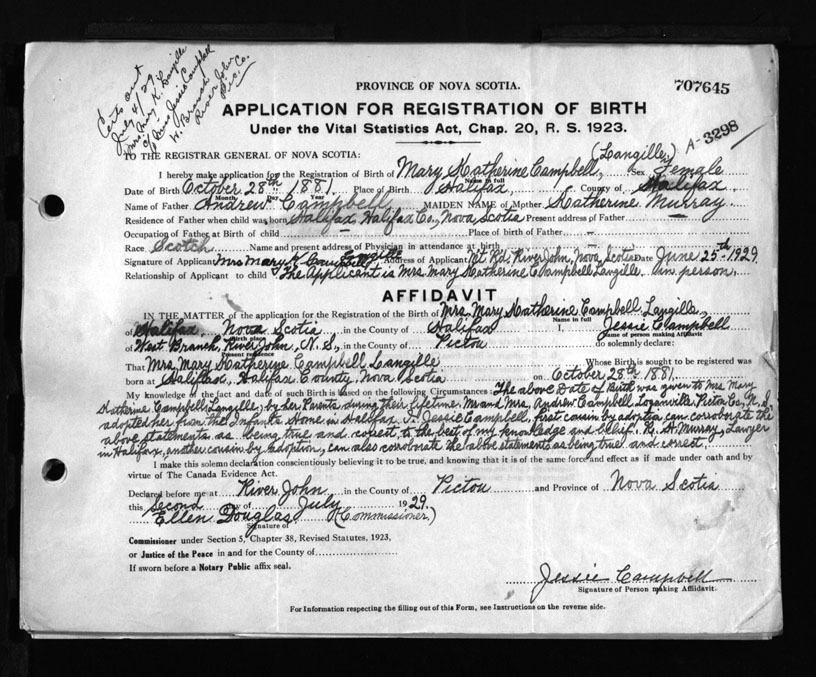 Certs out
July 4/29
Mrs. Mary K. Langille
c/o Miss Jessie Campbell
W. Branch
River John
Pic. Co.
PROVINCE OF NOVA SCOTIA.
707645
APPLICATION FOR REGISTRATION OF BIRTH
Under the Vital Statistics Act, Chap. 20, R. S. 1923.
A-3298
TO THE REGISTRAR GENERAL OF NOVA SCOTIA:
(Langille)
I hereby make application for the Registration of Birth of Mary Katherine Campbell, Sex Female
Name in full
Date of Birth October 28th 1881. Place of Birth Halifax, County of Halifax
Month Day Year
Name of Father Andrew Campbell, MAIDEN NAME of Mother Katherine Murray
Residence of Father when child was born Halifax, Halifax Co., Nova Scotia Present address of Father —
Occupation of Father at Birth of child — Place of birth of Father —
Race Scotch Name and present address of Physician in attendance at birth —
Signature of Applicant Mrs Mary K Campbell Langille Address of Applicant Rd. River John, Nova Scotia Date June 25th 1929.
Relationship of Applicant to child The Applicant is Mrs. Mary Katherine Campbell Langille. in person.
AFFIDAVIT
IN THE MATTER of the application for the Registration of the Birth of Mrs. Mary Katherine Campbell Langille,
Name in full
of Halifax, Nova Scotia in the County of Halifax I, Jessie Campbell
Birth place
Name of person making Affidavit
of West Branch, River John, N. S., in the County of Pictou do solemnly declare:
Present residence
That Mrs. Mary Katherine Campbell Langille Whose Birth is sought to be registered was
born at Halifax, Halifax County, Nova Scotia on October 28th 1881.
My knowledge of the fact and date of such Birth is based on the following Circumstances: The above Date of Birth was given to Mrs Mary
Katherine Campbell Langille, by her Parents during their lifetime. Mr and Mrs. Andrew Campbell, Loganville, Pictou Co., N. S.
adopted her from the Infants Home in Halifax. I, Jessie Campbell, first cousin by adoption, can corroborate the
above statements as being true and correct to the best of my knowledge and belief. R. H. Murray, Lawyer
in Halifax, another cousin by adoption, can also corroborate the above statements as being true and correct.
I make this solemn declaration conscientiously believing it to be true, and knowing that it is of the same force and effect as if made under oath and by
virtue of The Canada Evidence Act.
Declared before me at River John in the County of Pictou and Province of Nova Scotia
this Second day of July 1929.
Ellen Douglas (Commissioner)
Signature of
Commissioner under Section 5, Chapter 38, Revised Statutes, 1923,
or Justice of the Peace in and for the County of
If sworn before a Notary Public affix seal.
Jessie Campbell
Signature of Person making Affidavit.
For Information respecting the filling out of this Form, see Instructions on the reverse side.